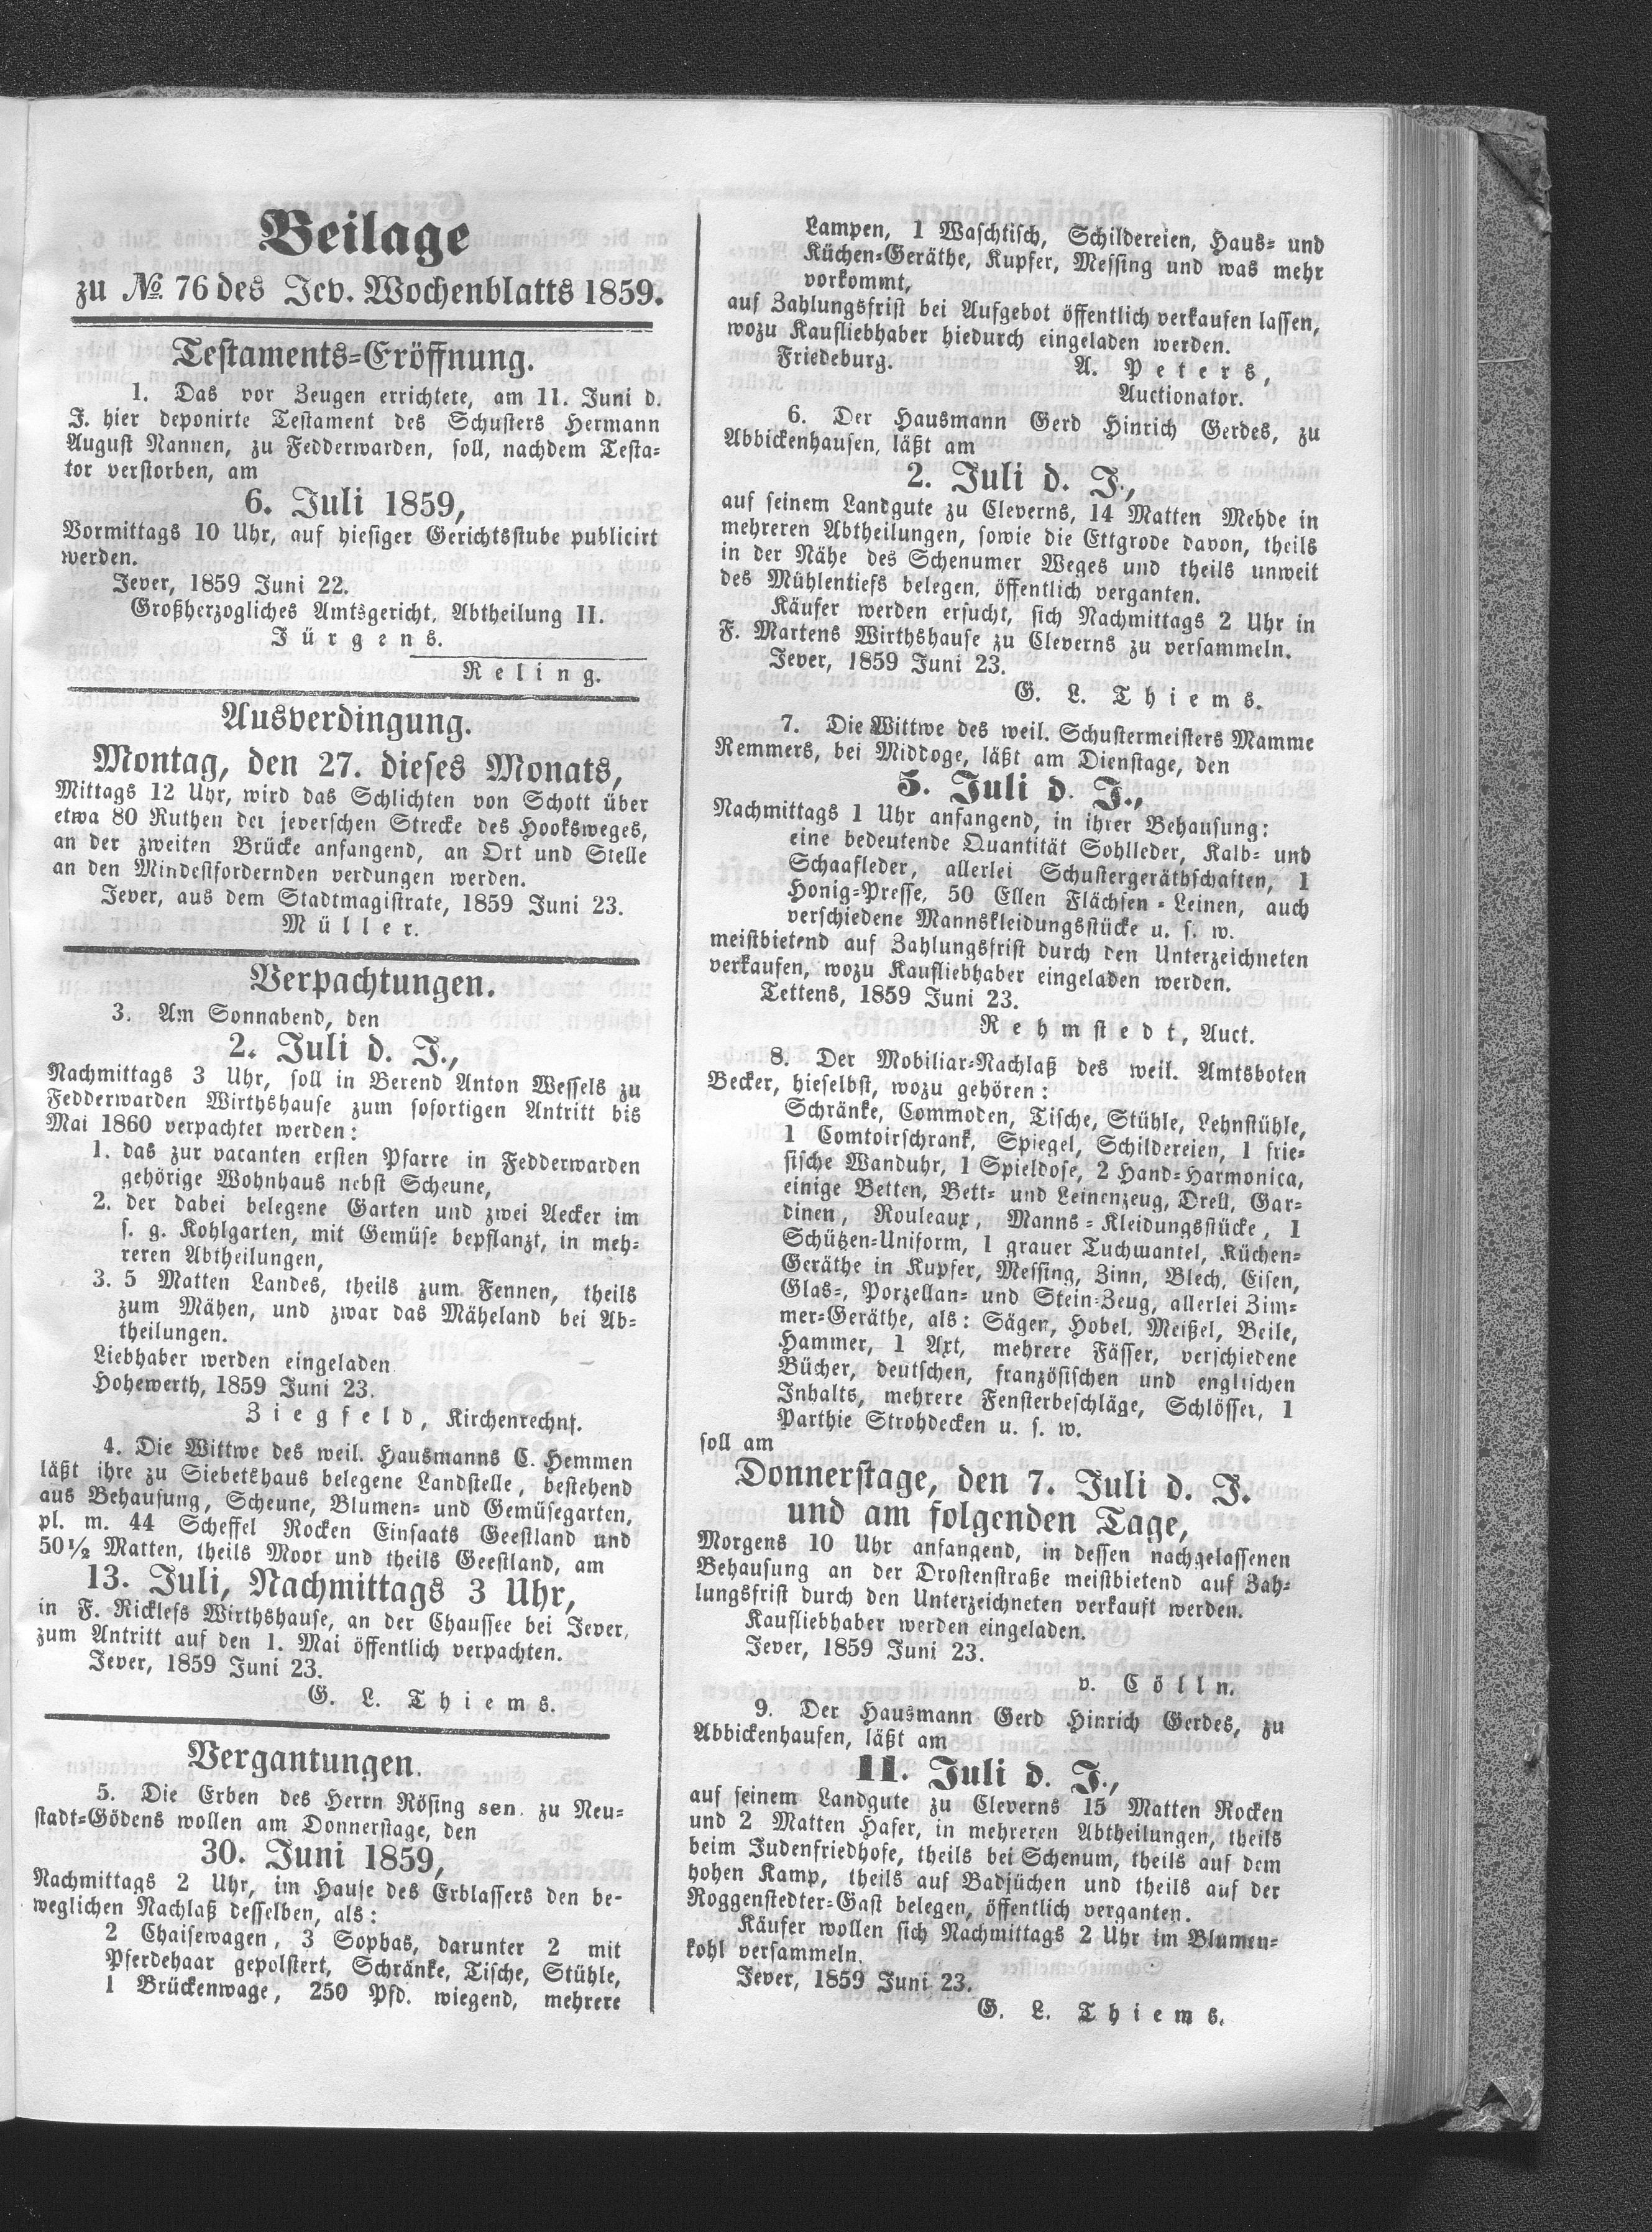 Beilage
zu № 76 des Jev. Wochenblatts 1859.
Testaments-Eröffnung.
1. Das vor Zeugen errichtete, am 11. Juni d.
J. hier deponirte Testament des Schusters Hermann
August Nannen, zu Fedderwarden, soll, nachdem Testa-
tor verstorben, am
6. Juli 1859,
Vormittags 10 Uhr, auf hiesiger Gerichtsstube publicirt
werden.
Jever, 1859 Juni 22.
Großherzogliches Amtsgericht, Abtheilung II.
Jürgens.
Reling.
Ausverdingung.
Montag, den 27. dieses Monats,
Mittags 12 Uhr, wird das Schlichten von Schott über
etwa 80 Ruthen der jeverschen Strecke des Hooksweges,
an der zweiten Brücke anfangend, an Ort und Stelle
an den Mindestfordernden verdungen werden.
Jever, aus dem Stadtmagistrate, 1859 Juni 23.
Müller.
Verpachtungen.
3. Am Sonnabend, den
2. Juli d. J.,
Nachmittags 3 Uhr, soll in Berend Anton Wessels zu
Fedderwarden Wirthshause zum sofortigen Antritt bis
Mai 1860 verpachtet werden:
1. das zur vacanten ersten Pfarre in Fedderwarden
gehörige Wohnhaus nebst Scheune,
2. der dabei belegene Garten und zwei Aecker im
s. g. Kohlgarten, mit Gemüse bepflanzt, in meh-
reren Abtheilungen,
3. 5 Matten Landes, theils zum Fennen, theils
zum Mähen, und zwar das Mäheland bei Ab-
theilungen.
Liebhaber werden eingeladen
Hohewerth, 1859 Juni 23.
Ziegfeld, Kirchenrechnf.
4. Die Wittwe des weil. Hausmanns C. Hemmen
läßt ihre zu Siebetshaus belegene Landstelle, bestehend
aus Behausung, Scheune, Blumen- und Gemüsegarten,
pl. m. 44 Scheffel Rocken Einsaats Geestland und
50½ Matten, theils Moor und theils Geestland, am
13. Juli, Nachmittags 3 Uhr,
in F. Ricklefs Wirthshause, an der Chaussee bei Jever,
zum Antritt auf den 1. Mai öffentlich verpachten.
Jever, 1859 Juni 23.
G. L. Thiems.
Vergantungen.
5. Die Erben des Herrn Rösing sen. zu Neu-
stadt-Gödens wollen am Donnerstage, den
30. Juni 1859,
Nachmittags 2 Uhr, im Hause des Erblassers den be-
weglichen Nachlaß desselben, als:
2 Chaisewagen, 3 Sophas, darunter 2 mit
Pferdehaar gepolstert, Schränke, Tische, Stühle,
1 Brückenwage, 250 Pfd. wiegend, mehrere
Lampen, 1 Waschtisch, Schildereien, Haus- und
Küchen-Geräthe, Kupfer, Messing und was mehr
vorkommt,
auf Zahlungsfrist bei Aufgebot öffentlich verkaufen lassen,
wozu Kaufliebhaber hiedurch eingeladen werden.
Friedeburg. A. Peters,
Auctionator.
6. Der Hausmann Gerd Hinrich Gerdes, zu
Abbickenhausen, läßt am
2. Juli d. J.,
auf seinem Landgute zu Cleverns, 14 Matten Mehde in
mehreren Abtheilungen, sowie die Ettgrode davon, theils
in der Nähe des Schenumer Weges und theils unweit
des Mühlentiefs belegen, öffentlich verganten.
Käufer werden ersucht, sich Nachmittags 2 Uhr in
F. Martens Wirthshause zu Cleverns zu versammeln.
Jever, 1859 Juni 23.
G. L. Thiems.
7. Die Wittwe des weil. Schustermeisters Mamme
Remmers, bei Middoge, läßt am Dienstage, den
5. Juli d. J.,
Nachmittags 1 Uhr anfangend, in ihrer Behausung:
eine bedeutende Quantität Sohlleder, Kalb- und
Schaafleder, allerlei Schustergeräthschaften, 1
Honig-Presse, 50 Ellen Flächsen-Leinen, auch
verschiedene Mannskleidungsstücke u. s. w.
meistbietend auf Zahlungsfrist durch den Unterzeichneten
verkaufen, wozu Kaufliebhaber eingeladen werden.
Tettens, 1859 Juni 23.
Rehmstedt, Auct.
8. Der Mobiliar-Nachlaß des weil. Amtsboten
Becker, hieselbst, wozu gehören:
Schränke, Commoden, Tische, Stühle, Lehnstühle,
1 Comtoirschrank, Spiegel, Schildereien, 1 frie-
sische Wanduhr, 1 Spieldose, 2 Hand-Harmonica,
einige Betten, Bett- und Leinenzeug, Drell, Gar-
dinen, Rouleaux, Manns-Kleidungsstücke, 1
Schützen-Uniform, 1 grauer Tuchmantel, Küchen-
Geräthe in Kupfer, Messing, Zinn, Blech, Eisen,
Glas-, Porzellan- und Stein-Zeug, allerlei Zim-
mer-Geräthe, als: Sägen, Hobel, Meißel, Beile,
Hammer, 1 Axt, mehrere Fässer, verschiedene
Bücher, deutschen, französischen und englischen
Inhalts, mehrere Fensterbeschläge, Schlösser, 1
Parthie Strohdecken u. s. w.
soll am
Donnerstage, den 7. Juli d. J.
und am folgenden Tage,
Morgens 10 Uhr anfangend, in dessen nachgelassenen
Behausung an der Drostenstraße meistbietend auf Zah-
lungsfrist durch den Unterzeichneten verkauft werden.
Kaufliebhaber werden eingeladen.
Jever, 1859 Juni 23.
v. Cölln.
9. Der Hausmann Gerd Hinrich Gerdes, zu
Abbickenhausen, läßt am
11. Juli d. J.,
auf seinem Landgute zu Cleverns 15 Matten Rocken
und 2 Matten Hafer, in mehreren Abtheilungen, theils
beim Judenfriedhofe, theils bei Schenum, theils auf dem
hohen Kamp, theils auf Badjüchen und theils auf der
Roggenstedter-Gast belegen, öffentlich verganten.
Käufer wollen sich Nachmittags 2 Uhr im Blumen-
kohl versammeln.
Jever, 1859 Juni 23.
G. L. Thiems.